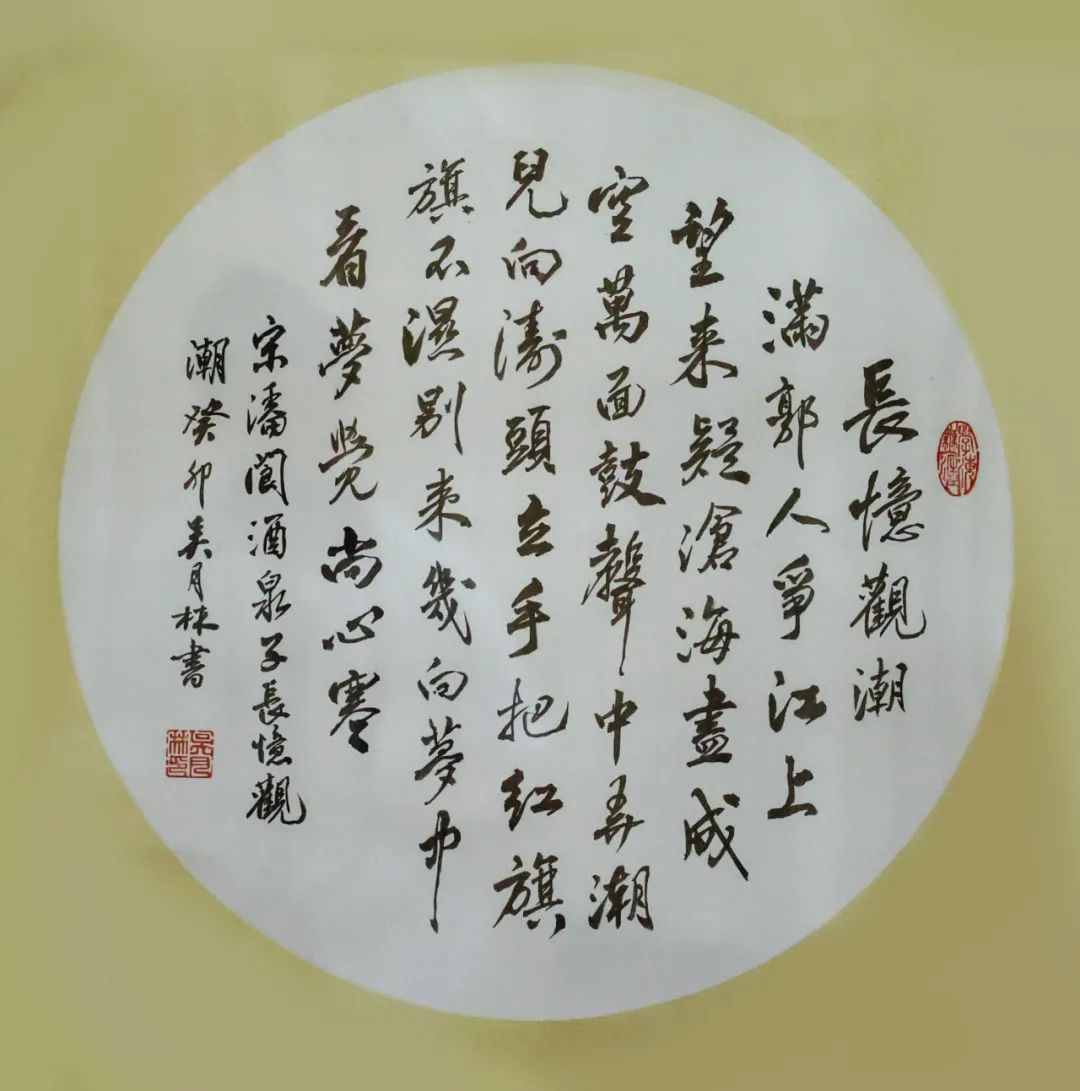 長憶觀潮
滿郭人爭江上
望來疑滄海盡成
空萬面鼓聲中弄潮
兒向濤頭立手把紅旗
旗不濕別來幾向夢中
看夢覺尚心寒
宋潘閬酒泉子長憶觀
潮癸卯吳月林書
吳月林印